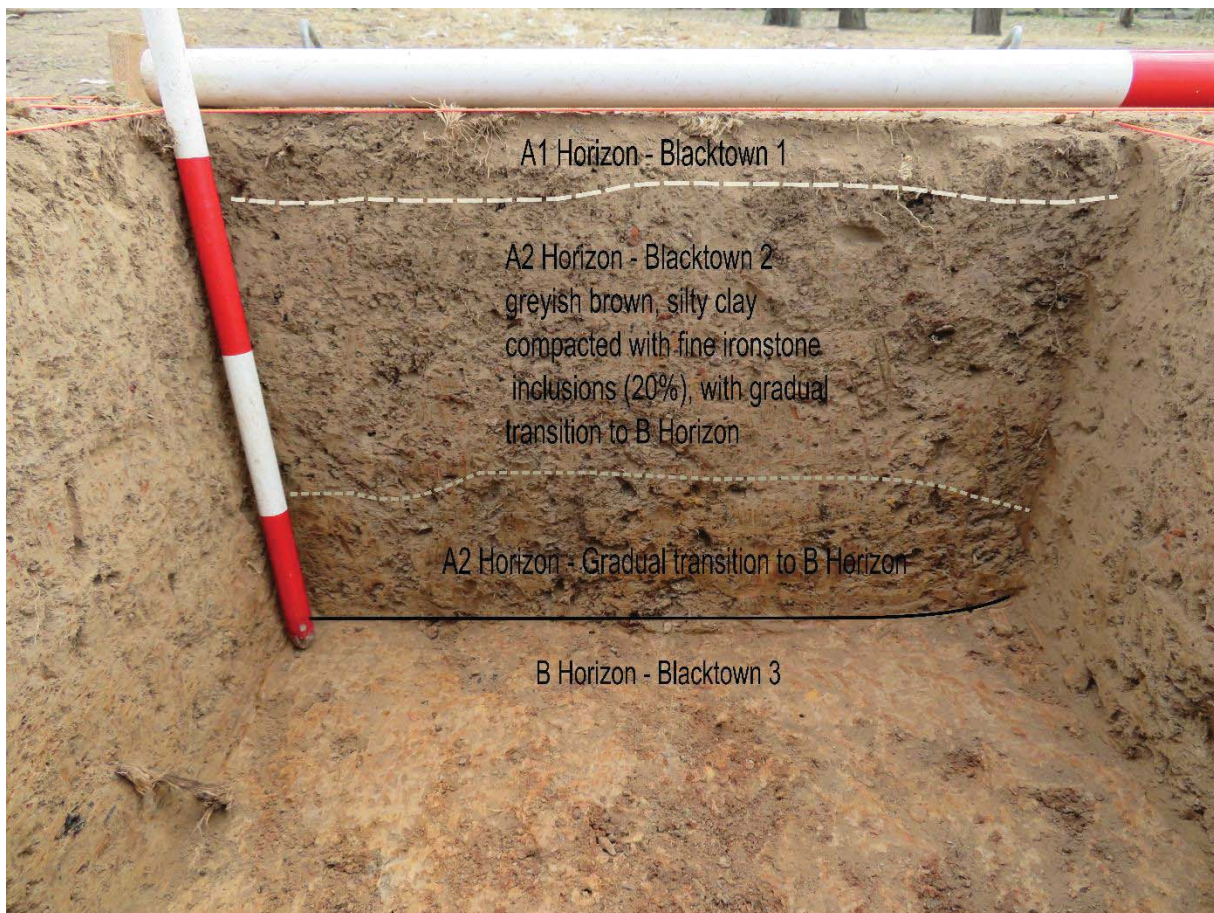 A1 Horizon - Blacktown 1
A2 Horizon - Blacktown 2
greyish brown, silty clay
compacted with fine ironstone
inclusions (20%), with gradual
transition to B Horizon
A2 Horizon - Gradual transition to B Horizon
B Horizon - Blacktown 3